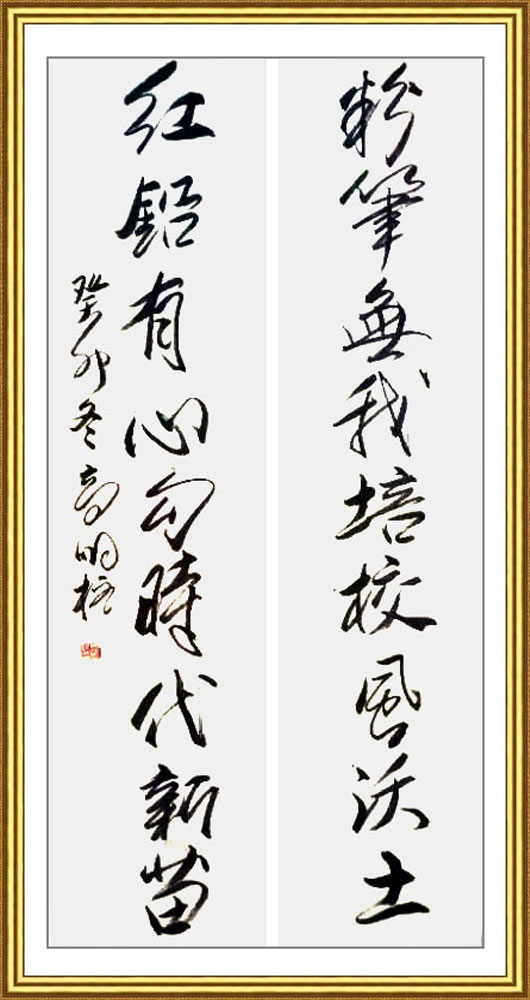 粉筆無我培校風沃土
红鉛有心勾時代新苗
癸卯冬高明